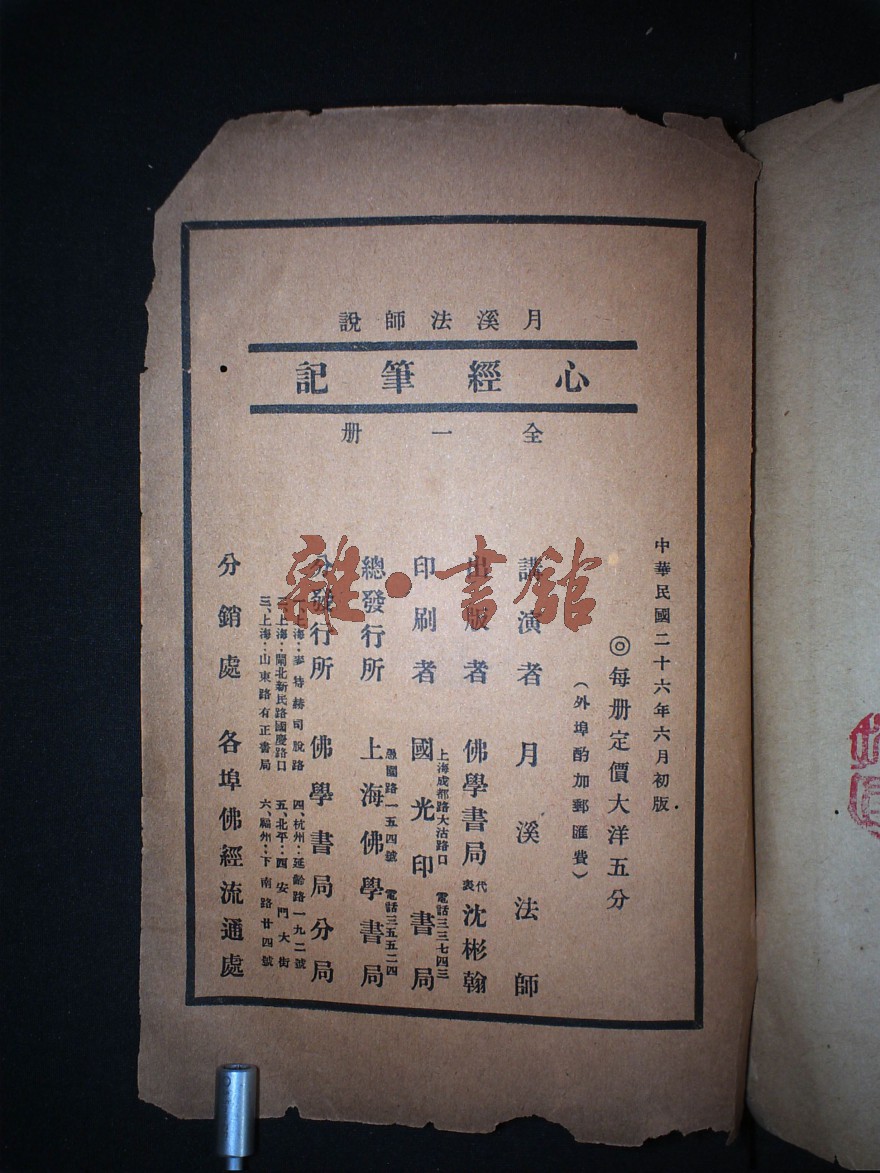 月溪法師說
心經筆記
全一册
中華民國二十六年六月初版
◎每册定價大洋五分
（外埠酌加郵匯費）
講演者 月溪法師
出版者 佛學書局代表沈彬翰
上海成都路大沽路口 電話三三七四三
印刷者 國光印書局
愚園路一五四號 電話三五五二四
總發行所 上海佛學書局
分發行所 佛學書局分局
一、上海：麥特赫司脫路 四、杭州：延齡路一九二號
二、上海：閘北新民路國慶路口 五、北平：西安門大街
三、上海：山東路有正書局 六、福州：下南路廿四號
分銷處 各埠佛經流通處
雜·書館